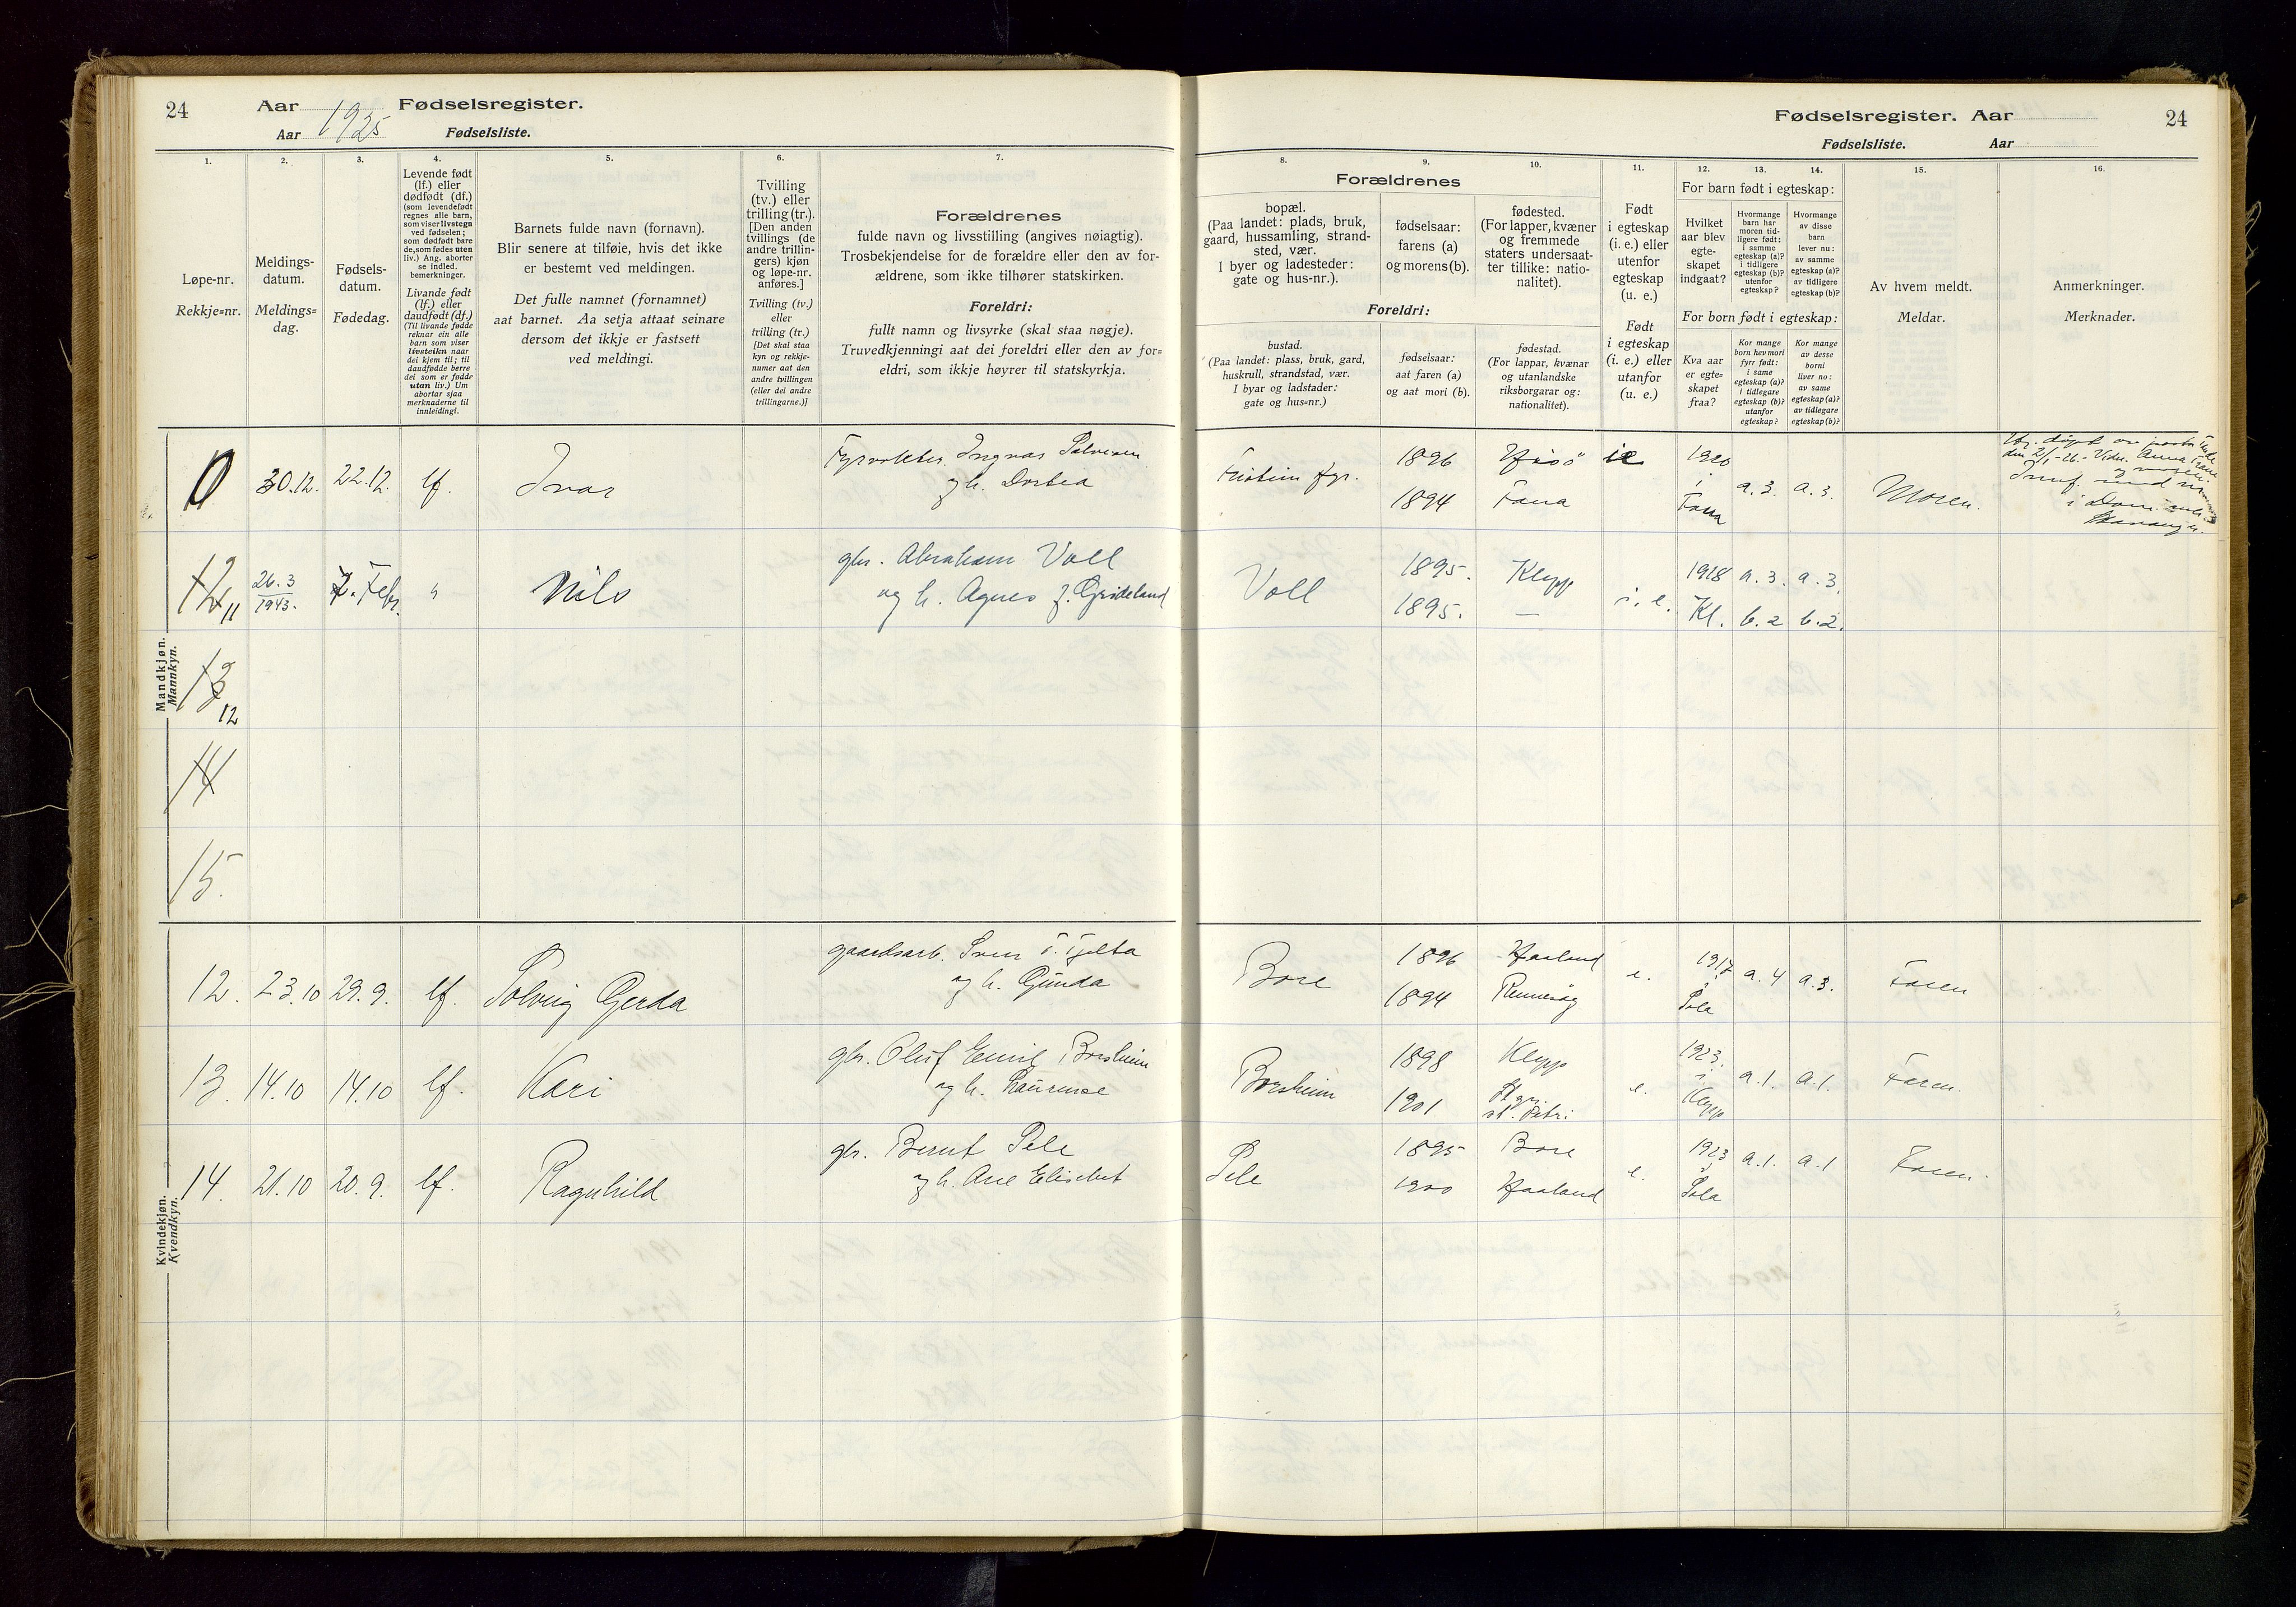 24
Aar 1925 Fødselsregister.
Aar Fødselsliste.
1.
Løpe-nr.
Rekkje=nr.
2.
Meldings-
datum.
Meldings=
dag.
3.
Fødsels-
datum.
Fødedag.
4.
Levende født
(lf.) eller
dødfødt (df.)
(som levendefødt
regnes alle barn,
som viser livstegn
ved fødselen;
som dødfødt bare
de, som fødes uten
liv.) Ang. aborter
se indled.
bemerkninger.
Livande født
(lf.) eller
daudfødt (df.)
(Til livande fødde
reknar ein alle
barn som viser
livsteikn naar
dei kjem til; til
daudfødde berre
dei som er fødde
utan liv.) Um
abortar sjaa
merknaderne til
innleidingi.
5.
Barnets fulde navn (fornavn).
Blir senere at tilføie, hvis det ikke
er bestemt ved meldingen.
Det fulle namnet (fornamnet)
aat barnet. Aa setja attaat seinare
dersom det ikkje er fastsett
ved meldingi.
6.
Tvilling
(tv.) eller
trilling (tr.).
[Den anden
tvillings (de
andre trillin-
gers) kjøn
og løpe-nr.
anføres.]
Tvilling (tv.)
eller
trilling (tr.)
[Det skal staa
kyn og rekkje-
numer aat den
andre tvillingen
(eller dei andre
trillingarne.)]
7.
Forældrenes
fulde navn og livsstilling (angives nøiagtig).
Trosbekjendelse for de forældre eller den av for-
ældrene, som ikke tilhører statskirken.
Foreldri:
fullt namn og livsyrke (skal staa nøgje).
Truvedkjenningi aat dei foreldri eller den av for=
eldri, som ikkje høyrer til statskyrkja.
Fødselsregister. Aar
24
Fødselsliste. Aar
Forældrenes
8.
bopæl.
(Paa landet: plads, bruk,
gaard, hussamling, strand-
sted, vær.
I byer og ladesteder:
gate og hus-nr.).
9.
fødselsaar:
farens (a)
og morens (b).
10.
fødested.
(For lapper, kvæner
og fremmede
staters undersaat-
ter tillike: natio-
nalitet).
Foreldri:
bustad.
(Paa landet: plass, bruk, gard,
huskrull, strandstad, vær.
I byar og ladstader:
gate og hus=nr.)
fødselsaar:
aat faren (a)
og aat mori (b).
fødestad.
(For lappar, kvænar
og utanlandske
riksborgarar og:
nationalitet).
11.
Født
i egteskap
(i. e.) eller
utenfor
egteskap
(u. e.)
Født
i egteskap
(i. e.) eller
utanfor
(u. e.)
For barn født i egteskap:
12.
Hvilket
aar blev
egte-
skapet
indgaat?
13.
Hvormange
barn har
moren tid-
ligere født:
i samme
egteskap (a)?
i tidligere
egteskap (b)?
utenfor
egteskap?
14.
Hvormange
av disse
barn
lever nu:
av samme
egteskap (a)?
av tidligere
egteskap (b)?
For born født i egteskap:
Kva aar
er egte=
skapet
fraa?
Kor mange
born hev mori
fyrr født:
i same
egteskap (a)?
i tidlegare
egteskap (b)?
utanfor
egteskap?
Kor mange
av desse
borni
liver no:
av same
egteskap (a)?
av tidlegare
egteskap (b)?
15.
Av hvem meldt.
Meldar.
16.
Anmerkninger.
Merknader.
Mandkjøn.
Mannkyn.
30.12. 22.12. lf. Ivar
og h. Dortea
Feistein fyr. 1896
1894 Fana
ie 1920 i Fana a. 3. a. 3. Moren.
12 11 26.3 1943. 7. Febr. " Nils
gbr. Abraham Voll
og h. Agnes f. Grødeland
Voll 1895. Klepp
1895. —
i. e. 1918 Kl. a. 3. b. 2 a. 3. b. 2.
13 12
14
15.
Kvindekjøn.
Kvendkyn.
12. 23.10 29.9. lf. Solveig Gerda
gaardsarb. Sven T. Tjelta
og h. Gunda
Bore 1896 Haaland
1894 Rennesøy
e. 1917 Sola a. 4 a. 3. Faren
13. 14.10 14.10 lf. Kari
gbr. Oluf Emil Borsheim
og h. Laurense
Borsheim 1898 Klepp
1901 st. Petri
e. 1923. i Klepp a. 1. a. 1. Faren.
14. 21.10 20.9. lf. Ragnhild
gbr. Bernt Sele
og h. Ane Elisebet
Sele 1895 Bore
1900 Haaland
e. 1923 Sola a. 1. a. 1 Faren.